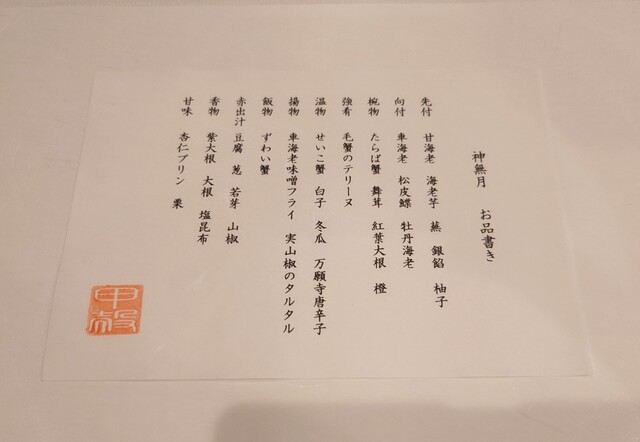 神無月 お品書き
先付 甘海老 海老芋 蕪 銀餡 柚子
向付 車海老 松皮鰈 牡丹海老
椀物 たらば蟹 舞茸 紅葉大根 橙
強肴 毛蟹のテリーヌ
温物 せいこ蟹 白子 冬瓜 万願寺唐辛子
揚物 車海老味噌フライ 実山椒のタルタル
飯物 ずわい蟹
赤出汁 豆腐 葱 若芽 山椒
香物 紫大根 大根 塩昆布
甘味 杏仁プリン 栗
甲殻